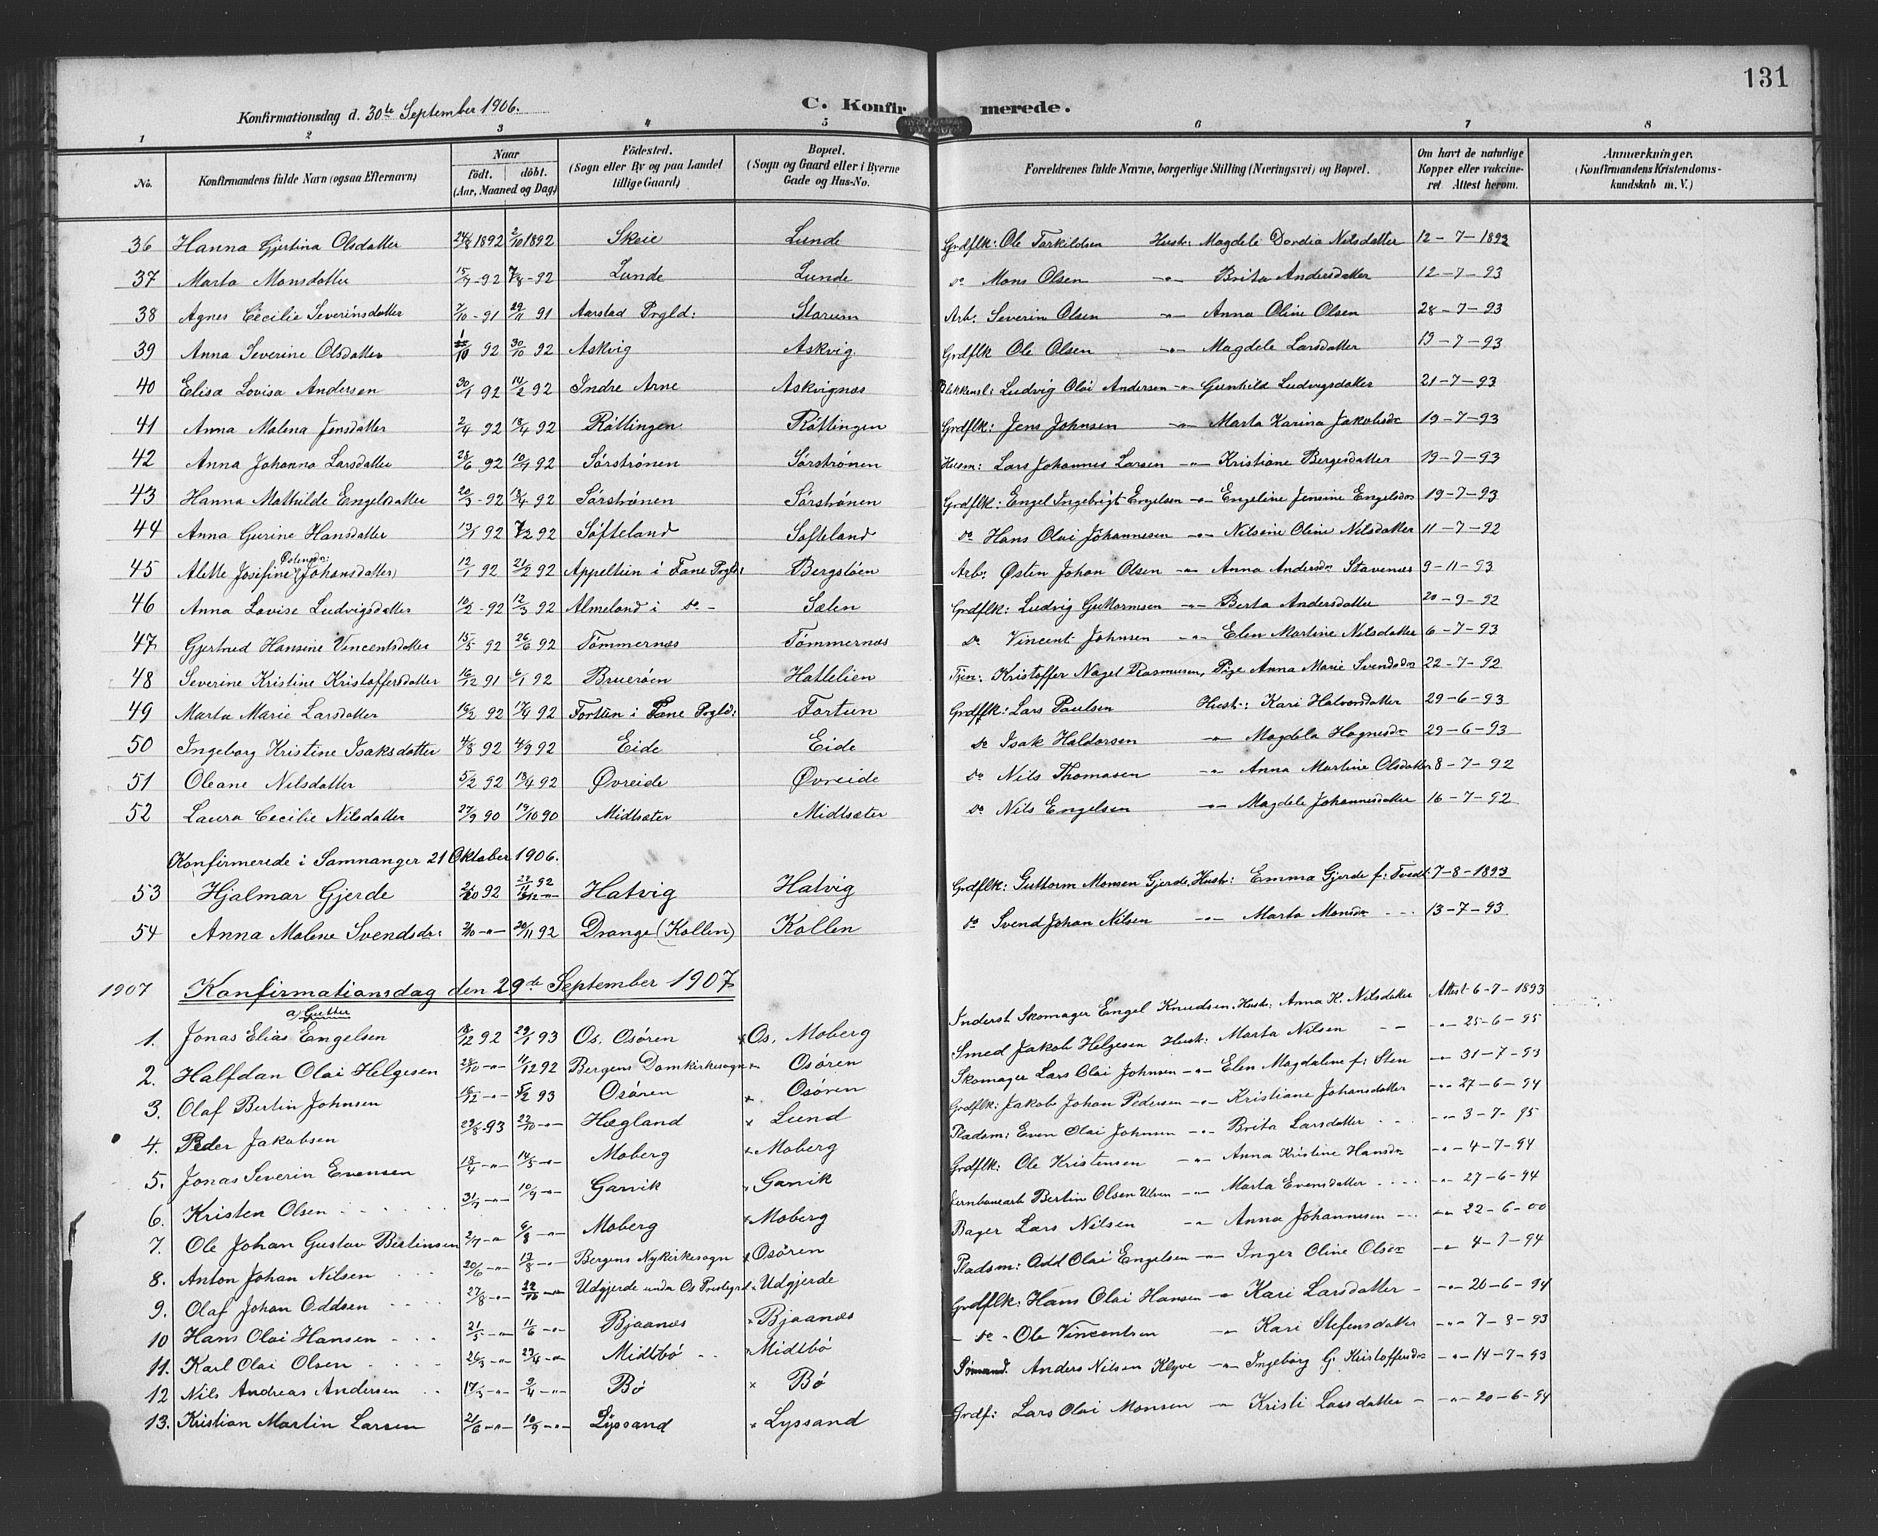 131
C. Konfirmerede.
Konfirmationsdag d. 30te September 1906.
1 2 3 4 5 6 7 8
No. Konfirmandens fulde Navn (ogsaa Efternavn) Naar født. døbt. (Aar, Maaned og Dag) Fødested. (Sogn eller By og paa Landet tillige Gaard) Bopæl. (Sogn og Gaard eller i Byerne Gade og Hus-No. Forældrenes fulde Navne, borgerlige Stilling (Næringsvei) og Bopæl. Om havt de naturlige Kopper eller vaccineret. Attest herom. Anmærkninger. (Konfirmandens Kristendomskundskab m. V.)
36 Hanna Gjertina Olsdatter 24/8 1892 2/10 1892 Skeie Lunde Grdflk: Ole Tarkildsen Hust: Magdele Dordia Nilsdatter 12-7-1893
37 Marta Monsdatter 15/7-92 7/8-92 Lunde Lunde do Mons Olsen -"- Brita Andersdatter 12-7-93
38 Agnes Cecilie Severinsdatter 7/10-91 29/11 91 Aarstad Prgld: Storum Arb: Severin Olsen -"- Anna Oline Olsen 28-7-93
39 Anna Severine Olsdatter 1/10 92 30/10 92 Askvig Askvig Grdflk Ole Olsen -"- Magdele Larsdatter 19-7-93
40 Elisa Lovisa Andersen 30/1 92 14/2 92 Indre Arne Askvignes Blikkensl: Ludvig Olai Andersen -"- Gunhild Ludvigsdatter 21-7-93
41 Anna Malena Jensdatter 2/4 92 18/4 92 Røttingen Røttingen Grdflk: Jens Johnsen -"- Marta Karina Jakobsdr 19-7-93
42 Anna Johanna Larsdatter 28/6 92 10/7 92 Sørstrønen Sørstrønen Husm: Lars Johannes Larsen -"- Kristiane Bergesdatter 19-7-93
43 Hanna Mathilde Engelsdatter 20/3-92 18/4 92 Sørstrønen Sørstrønen Grdflk: Engel Ingebrigt Engelsen -"- Engeline Jensine Engelsdr 19-7-93
44 Anna Gurine Hansdatter 13/1 92 7/2 92 Søfteland Søfteland do Hans Olai Johannesen -"- Nilsine Oline Nilsdatter 11-7-92
45 Alette Josefine Østensdr: (Johansdatter) 12/1 92 21/2 92 Appeltun i Fane Prgld: Bergsløen Arb: Østen Johan Olsen -"- Anna Andersdr Stavenes 9-11-93
46 Anna Lovise Ludvigsdatter 10/2-92 12/3 92 Almeland i do- Sælen Grdflk: Ludvig Guttormsen -"- Berta Andersdatter 20-9-92
47 Gjertrud Hansine Vincentsdatter 15/5 92 26/6 92 Tømmernes Tømmernes do Vincent Johnsen -"- Elen Martine Nilsdatter 6-7-93
48 Severine Kristine Kristoffersdatter 16/12 91 6/1 92 Bruerøen Hattelien Tjen: Kristoffer Nagel Rasmussen, Pige Anna Marie Svendsdr 22-7-92
49 Marta Marie Larsdatter 19/2 92 17/4 92 Fortun i Fane Prgld: Fortun Grdflk: Lars Paulsen Hust: Kari Halvorsdatter 29-6-93
50 Ingeborg Kristine Isaksdatter 4/8 92 4/9 92 Eide Eide do Isak Haldorsen -"- Magdela Hognesdr 29-6-93
51 Oleane Nilsdatter 5/2 92 18/4 92 Øvreide Øvreide do Nils Thomasen -"- Anna Martine Olsdatter 8-7-92
52 Laura Cecilie Nilsdatter 27/9 90 19/10 90 Midtsæter Midtsæter do Nils Engelsen -"- Magdele Johannesdatter 16-7-92
Konfirmerede i Samnanger 21 Oktober 1906.
53 Hjalmar Gjerde 92 92 Hatvig Hatvig Grdflk: Guttorm Monsen Gjerde, Hust: Emma Gjerde f: Tvedt 7-8-1893
54 Anna Malene Svendsdr: 2/10 -"- 20/11 92 Drange (Kollen) Kollen do Svend Johan Nilsen -"- Marta Monsdr 13-7-93
1907 Konfirmationsdag den 29de September 1907
a, Gutter
1. Jonas Elias Engelsen 18/12 92 29/1 93 Os. Osøren Os, Moberg Inderst Skomager Engel Knudsen, Hust: Anna K. Nilsdatter Attest 6-7-1893
2. Halfdan Olai Helgesen 28/10 -"- 11/12 92 Bergens Domkirkesogn Osøren Smed Jakob Helgesen Hust: Marta Nilsen -"- 25-6-95
3. Olaf Bertin Johnsen 16/12 -"- 5/2 93 Osøren Osøren Skomager Lars Olai Johnsen -"- Elen Magdalene f: Sten -"- 31-7-93
4. Peder Jakobsen 29/8-93 22/10 -"- Hegland Lund Grdflk: Jakob Johan Pedersen -"- Kristiane Johansdatter -"- 27-6-94
5. Jonas Severin Evensen 18/4 -"- 14/5 -"- Moberg Moberg Pladsm: Even Olai Johnsen -"- Brita Larsdatter -"- 3-7-95
6. Kristen Olsen 31/7 -"- 10/9 -"- Gasvik Gasvik Grdflk: Ole Kristensen -"- Anna Kristine Hansdr -"- 4-7-94
7. Ole Johan Gustav Bertinsen 2/7 -"- 6/8 -"- Moberg Moberg Jernbanearb Bertin Olsen Ulven -"- Marta Evensdatter -"- 27-6-94
8. Anton Johan Nilsen 20/6 -"- 13/8 -"- Bergens Nykirkesogn Osøren Bager Lars Nilsen -"- Anna Johannesen -"- 22-6-00
9. Olaf Johan Oddsen 27/8 -"- 22/10 -"- Udgjerde under Os Prestegrd Udgjerde Pladsm: Odd Olai Engelsen -"- Inger Oline Olsdr -"- 4-7-94
10 Hans Olai Hansen 21/5 -"- 11/6 -"- Bjaanes Bjaanes Grdflk: Hans Olai Hansen -"- Kari Larsdatter -"- 20-6-94
11. Karl Olai Olsen 26/3 -"- 23/4 -"- Midtbø Midtbø -do- Ole Vincentsen -"- Kari Stefensdatter -"- 7-8-93
12 Nils Andreas Andersen 17/3 -"- 3/4 -"- Bø Bø Sømand. Anders Nilsen Klyve -"- Ingeborg G. Kristoffersdr -"- 14-7-93
13. Kristian Martin Larsen 21/6 -"- 10/9 -"- Lyssand Lyssand Grdf: Lars Olai Monsen -"- Kristi Larsdatter -"- 20-6-94